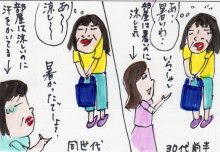 あ〜
暑いわ〜
部屋は暑いのに
涼む
いらっしゃい
30代前半
あ〜
涼し〜
部屋は涼しいのに
汗をかいてる
暑かったでしょ?
同世代